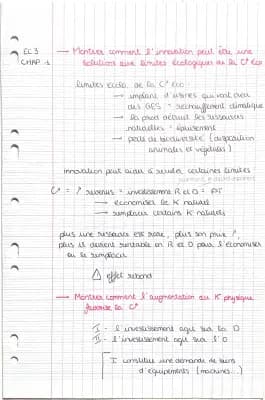 EC 3 → Montrer comment l'innovation peut être une
CHAP 1 solutions aux limites écologiques de la C° éco
limites écolo. de la C° éco :
→ implant. d'usines qui vont avec
des GES → réchauffement climatique
→ la prod actuel des ressources
naturelles = épuisement
→ perte de biodiversité (disparition
animales et végétales)
innovation peut aider à reculer certaines limites
C° = ↗ revenus = investissement R et D = PT
→ économiser le K naturel
→ remplacer certains K naturels
plus une ressource est rare, plus son prix ↗,
plus il devient rentable en R et D pour l'économiser
ou la remplacer
⚠ effet rebond
→ Montrer comment l'augmentation du K physique
favorise la C°
I - l'investissement agit sur la D
II - l'investissement agit sur l'O
I constitue une demande de biens
d'équipements (machines...)